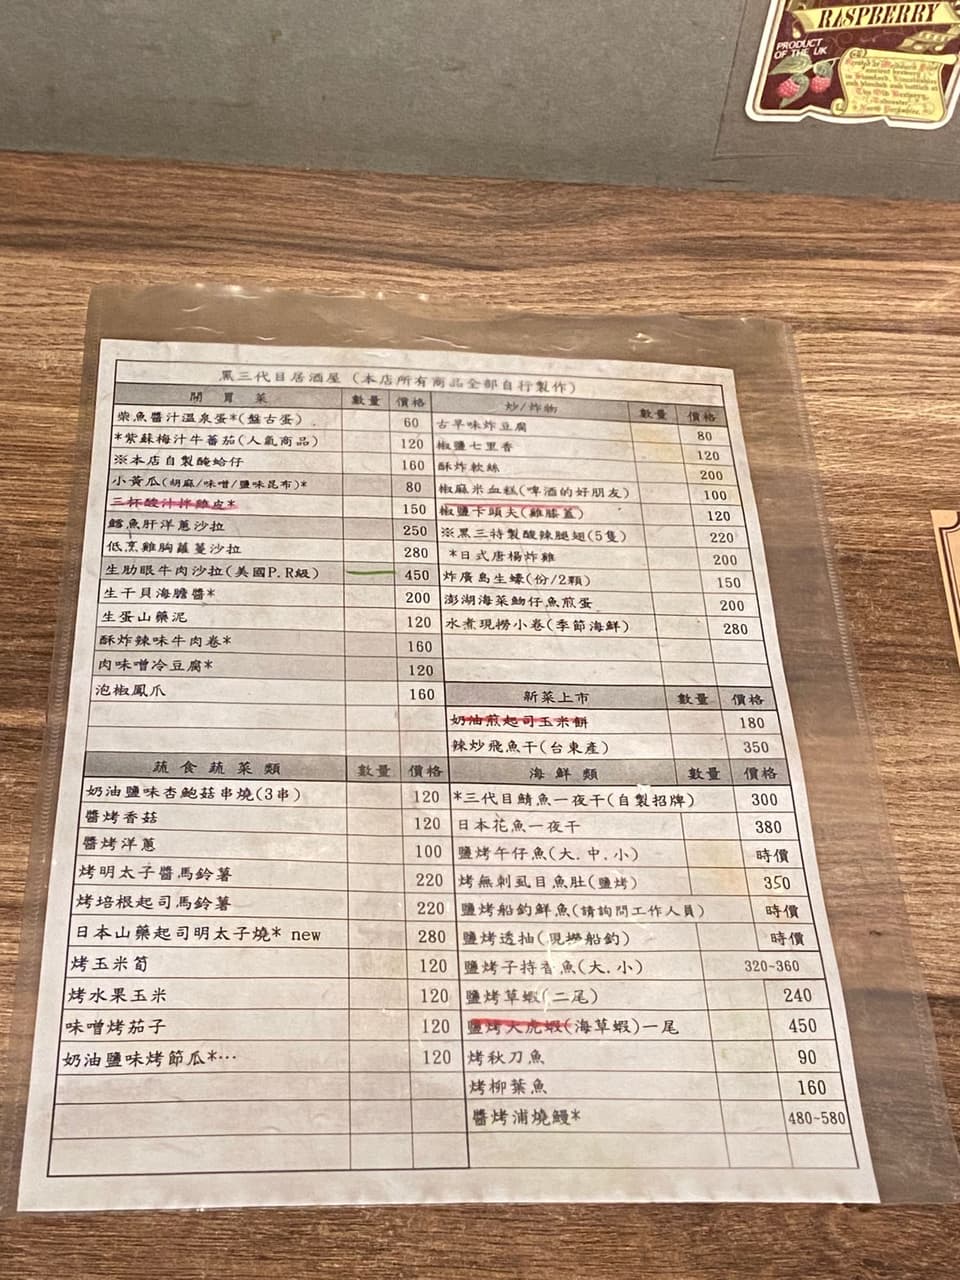 RASPBERRY
PRODUCT
OF THE UK
黑三代目居酒屋 (本店所有商品全部自行製作)
開胃菜 數量 價格
柴魚醬汁溫泉蛋*(盤古蛋) 60
*紫蘇梅汁牛蕃茄(人氣商品) 120
※本店自製醃蛤仔 160
小黃瓜(胡麻/味噌/鹽味昆布)* 80
三杯酸汁拌雞皮* 150
鱈魚肝洋蔥沙拉 250
低烹雞胸蘿蔓沙拉 280
生肋眼牛肉沙拉(美國P.R級) 450
生干貝海膽醬* 200
生蛋山藥泥 120
酥炸辣味牛肉卷* 160
肉味噌冷豆腐* 120
泡椒鳳爪 160
蔬食蔬菜類 數量 價格
奶油鹽味杏鮑菇串燒(3串) 120
醬烤香菇 120
醬烤洋蔥 100
烤明太子醬馬鈴薯 220
烤培根起司馬鈴薯 220
日本山藥起司明太子燒* new 280
烤玉米筍 120
烤水果玉米 120
味噌烤茄子 120
奶油鹽味烤節瓜*… 120
炒/炸物 數量 價格
古早味炸豆腐 80
椒鹽七里香 120
酥炸軟絲 200
椒麻米血糕(啤酒的好朋友) 100
椒鹽卡頭夫(雞膝蓋) 120
※黑三特製酸辣腿翅(5隻) 220
*日式唐楊炸雞 200
炸廣島生蠔(份/2顆) 150
澎湖海菜魩仔魚煎蛋 200
水煮現撈小卷(季節海鮮) 280
新菜上市 數量 價格
奶油煎起司玉米餅 180
辣炒飛魚干(台東產) 350
海鮮類 數量 價格
*三代目鯖魚一夜干(自製招牌) 300
日本花魚一夜干 380
鹽烤午仔魚(大.中.小) 時價
烤無刺虱目魚肚(鹽烤) 350
鹽烤船釣鮮魚(請詢問工作人員) 時價
鹽烤透抽(現撈船釣) 時價
鹽烤子持香魚(大.小) 320~360
鹽烤草蝦(二尾) 240
鹽烤大虎蝦(海草蝦)一尾 450
烤秋刀魚 90
烤柳葉魚 160
醬烤浦燒鰻* 480~580